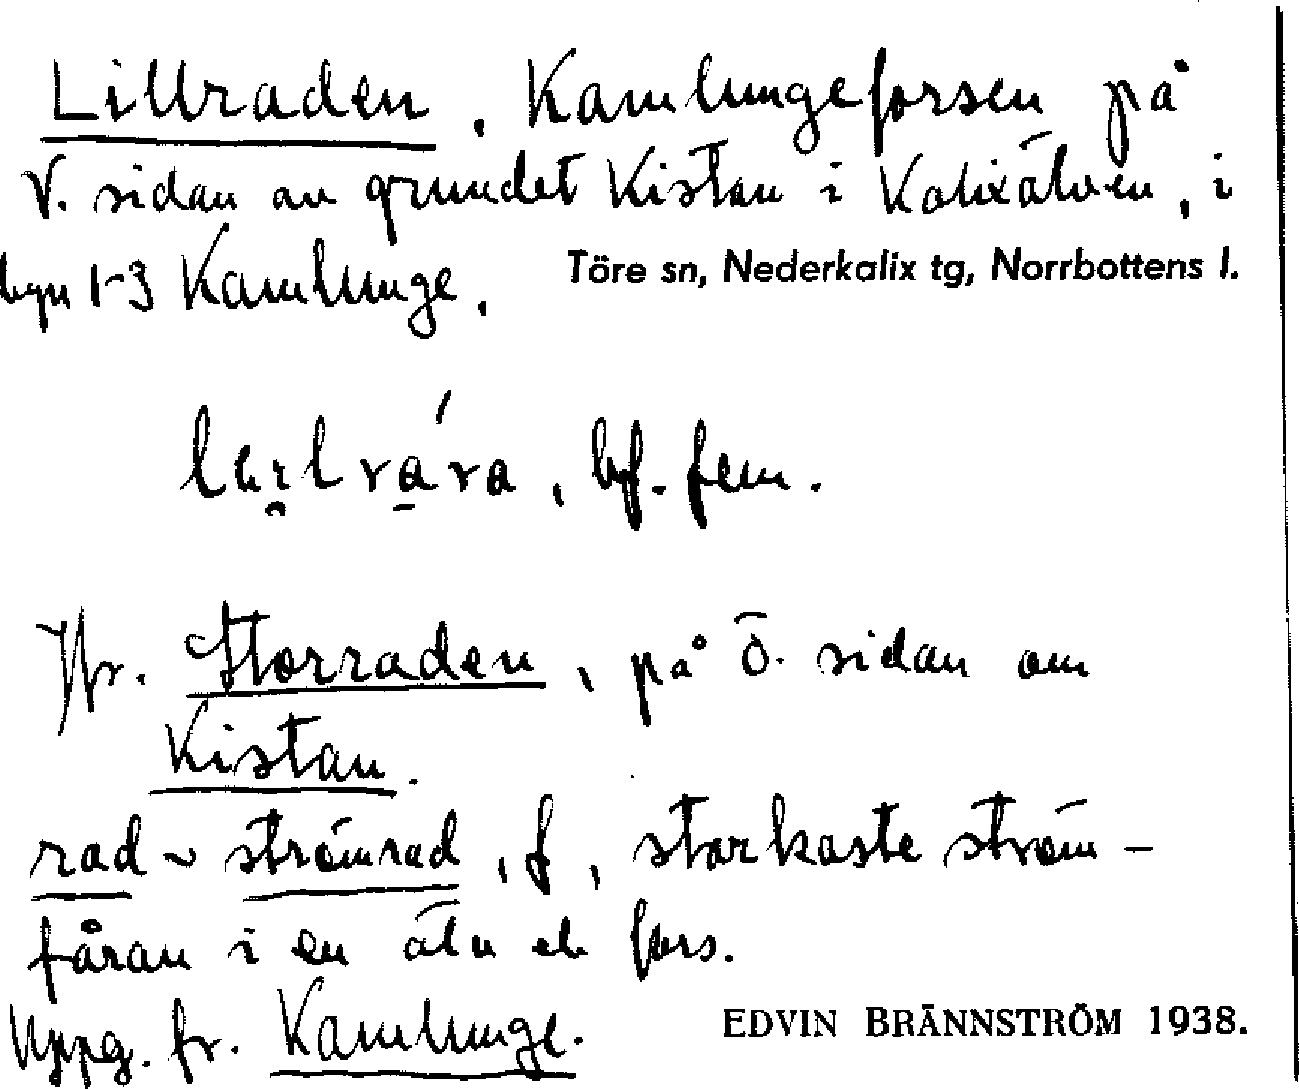 Lillraden, Kamlungeforsen på
V. sidan av grundet Kistan i Kalixälven, i
byn 1-3 Kamlunge. Töre sn, Nederkalix tg, Norrbottens l.
bf. fem.
Jfr. Storraden, på ö. sidan om
Kistan.
rad ~ strömrad, f, starkaste ström-
fåran i en älv el fors.
Uppg. fr. Kamlunge. EDVIN BRÄNNSTRÖM 1938.